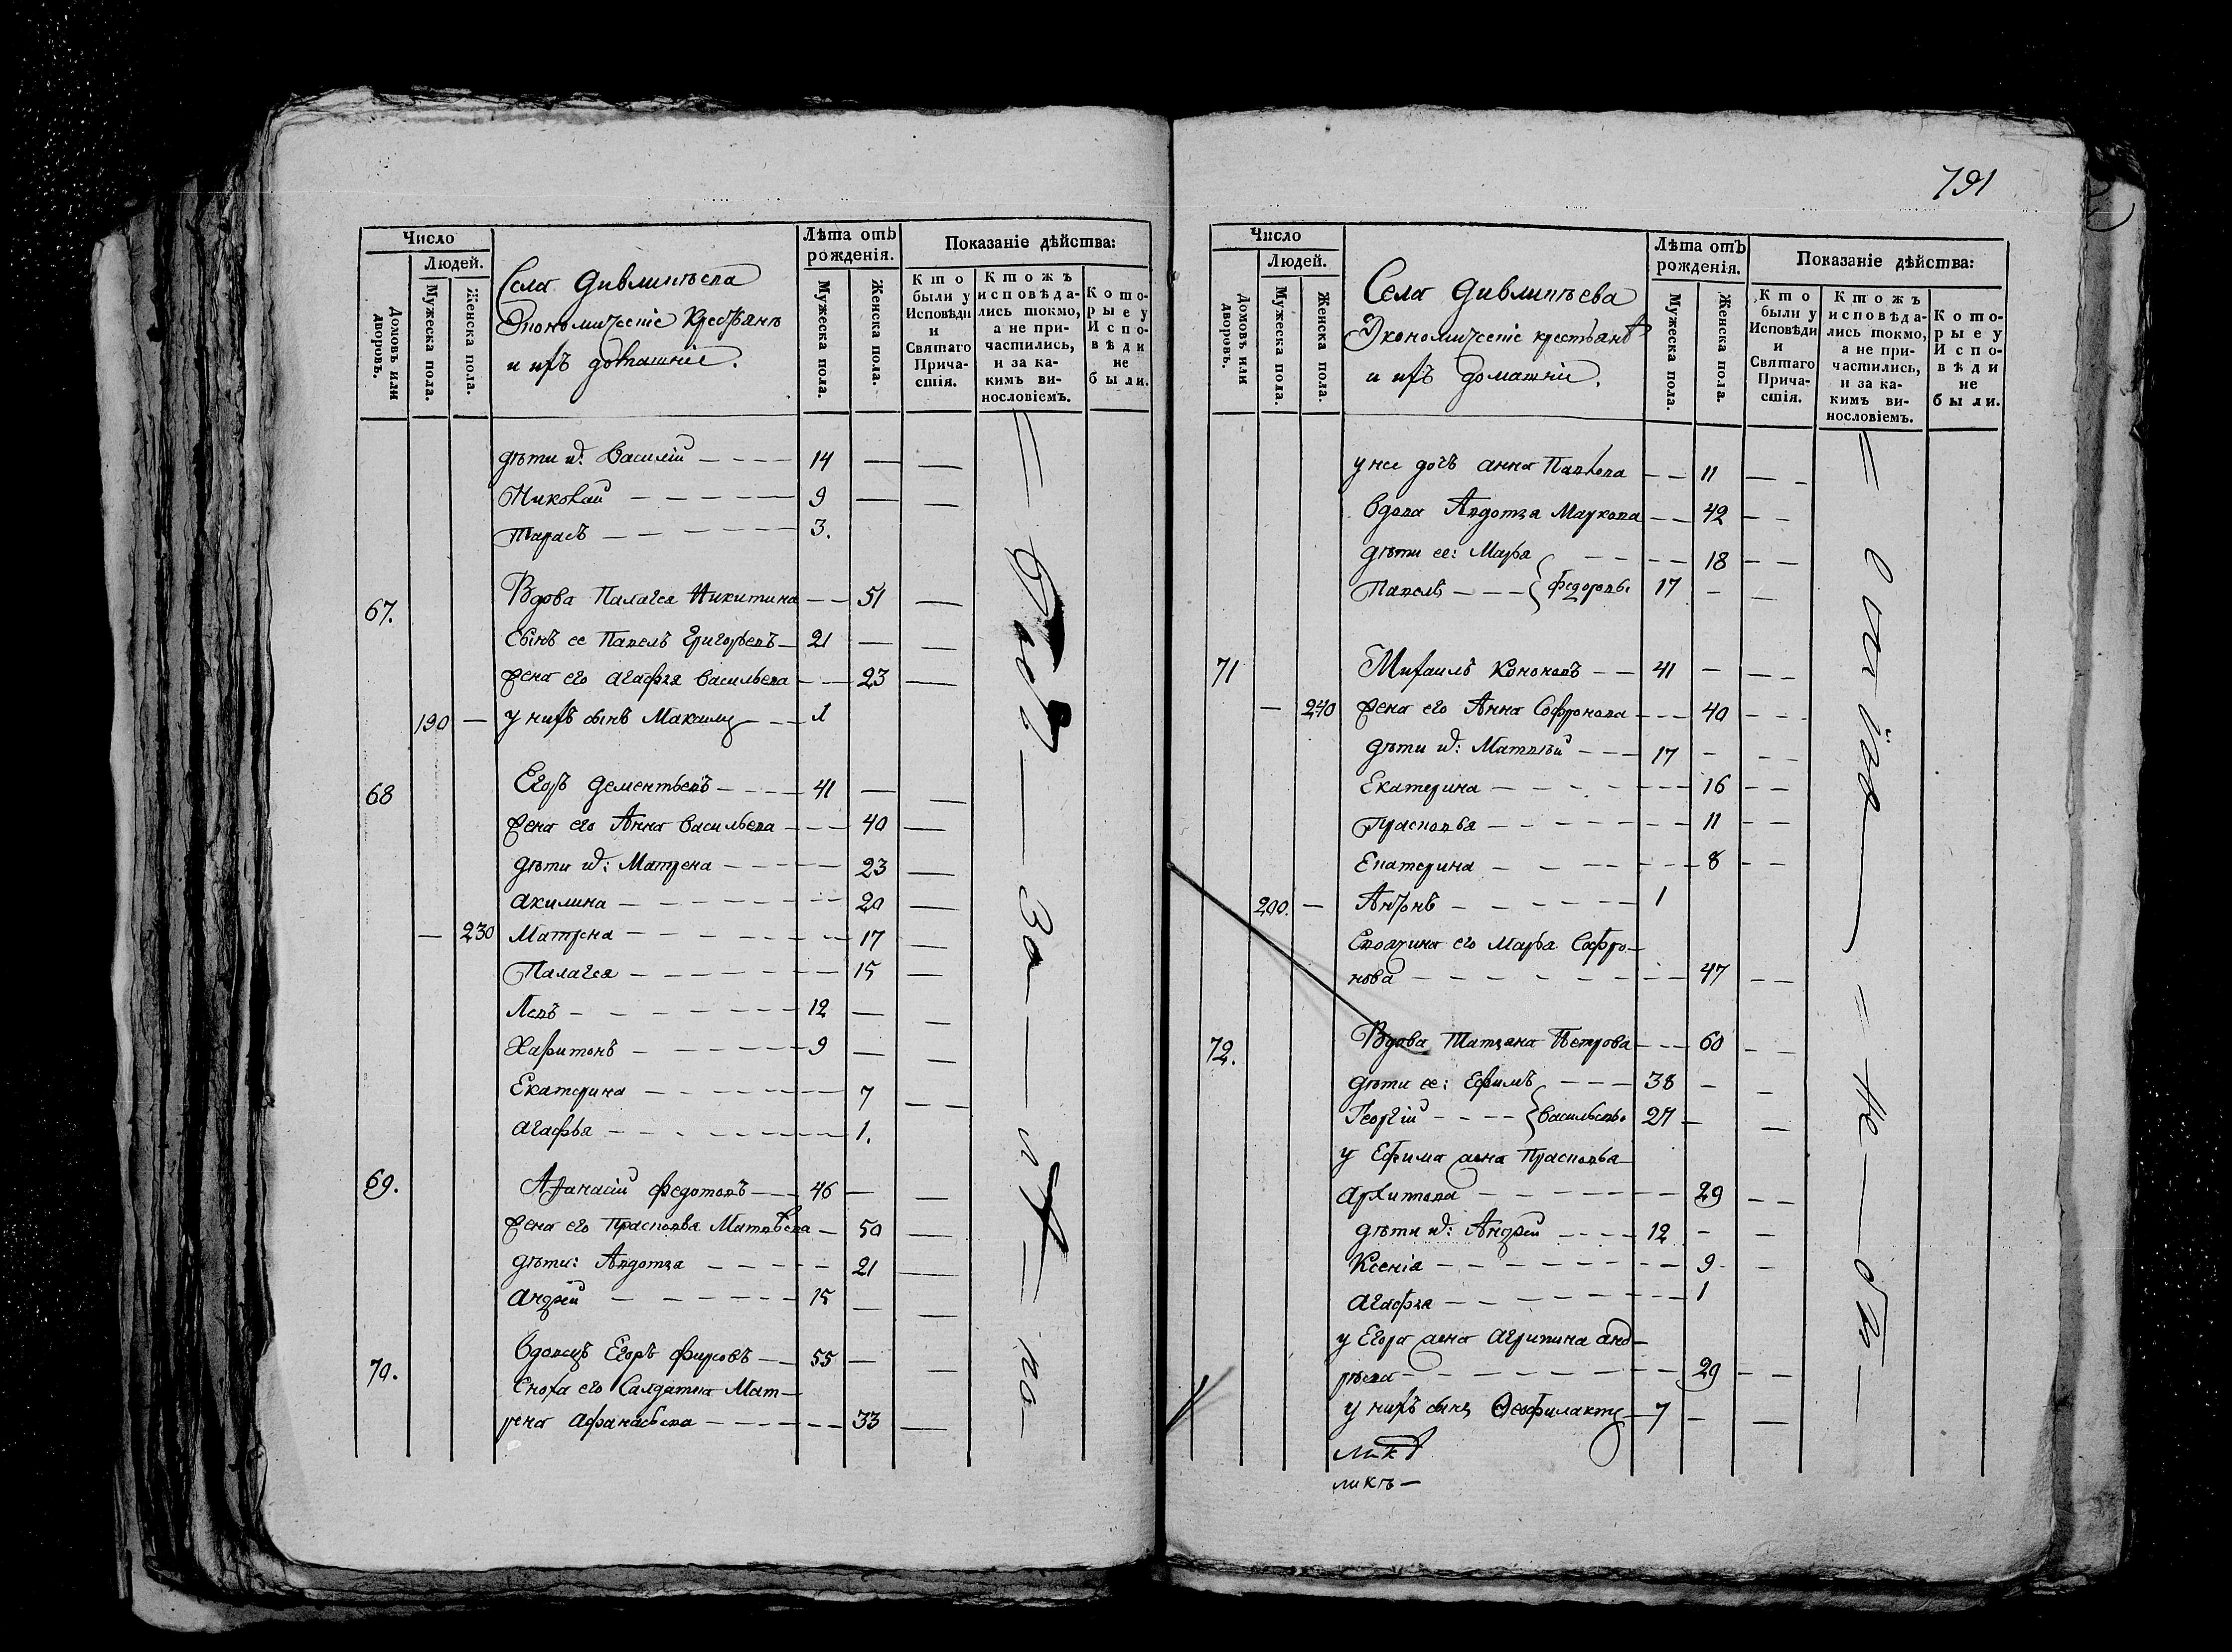 Число
Людей.
Домовъ или дворовъ.
Мужеска пола.
Женска пола.
Села Дивлитъева
Экономическіе Крестьянъ
и ихъ домашніе.
Лѣта отъ рожденія.
Мужеска пола.
Женска пола.
Показаніе дѣйства:
Кто были у Исповѣди и Святаго Причастія.
Ктожъ исповѣдались токмо, а не причастились, и за какимъ винословіемъ.
Которые у Исповѣди не были.
дѣти их: Василій 14
Николай 9
Тарасъ 3.
67. Вдова Палагея Никитина 51
Сынъ ее Павелъ Григорьевъ 21
жена его Агафья Васильева 23
190 — у нихъ сынъ Максимъ 1
68 Егоръ Дементьевъ 41
жена его Анна Васильева 40
дѣти их: Матрена 23
Акилина 20
— 230 Матрена 17
Палагея 15
Левъ 12
Харитонъ 9
Екатерина 7
Агафья 1.
69. Афанасій Федотовъ 46
жена его Прасковья Матвѣева 50
дѣти: Авдотья 21
Андрей 15
70. Вдовецъ Егоръ Фирсовъ 55
Сноха его Салдатка Мат-
рена Афанасьева 33
791
Число
Людей.
Домовъ или дворовъ.
Мужеска пола.
Женска пола.
Села Дивлитъева
Экономическіе крестьянъ
и ихъ домашніе.
Лѣта отъ рожденія.
Мужеска пола.
Женска пола.
Показаніе дѣйства:
Кто были у Исповѣди и Святаго Причастія.
Ктожъ исповѣдались токмо, а не причастились, и за какимъ винословіемъ.
Которые у Исповѣди не были.
у нее дочь Анна Павлова 11
Вдова Авдотья Маркова 42
дѣти ее: Марфа 18
Павелъ Федоровы 17
71 Михаилъ Кононовъ 41
— 240 жена его Анна Софронова 40
дѣти их: Матвѣй 17
Екатерина 16
Прасковья 11
Екатерина 8
200. — Антонъ 1
Своячина его Марфа Софро-
нова 47
72. Вдова Татьяна Петрова 60
дѣти ее: Ефимъ 38
Георгій Васильевы 27
у Ефима жена Прасковья
Архипова 29
дѣти их: Андрей 12
Ксенія 9
Агафья 1
у Егора жена Агрипина Анд-
рѣева 29
у нихъ сынъ Ѳеофилактъ 7
не